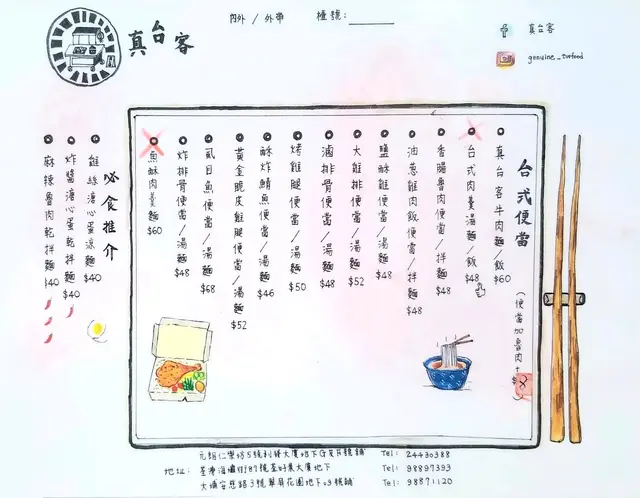 真台客
內外 / 外帶
檯號:
真台客
genuine_twfood
台式便當
(便當加魯肉+$
真台客牛肉麵/飯 $60
台式肉羹湯麵/飯 $48
香腸魯肉便當/拌麵 $48
油葱雞肉飯便當/拌麵 $48
鹽酥雞便當/湯麵 $48
大雞排便當/湯麵 $52
滷排骨便當/湯麵 $48
烤雞腿便當/湯麵 $50
酥炸鯖魚便當/湯麵 $46
黃金脆皮雞腿便當/湯麵 $52
虱目魚便當/湯麵 $68
炸排骨便當/湯麵 $48
魚酥肉羹麵 $60
必食推介
雞絲溏心蛋涼麵 $40
炸醬溏心蛋乾拌麵 $40
麻辣魯肉乾拌麵 $40
地址:
元朗仁樂坊5號利發大廈地下 Tel: 24430388
荃灣海壩街87號荃好業大廈地下 Tel: 98897393
大埔安慈路3號翠屏花園地下 Tel: 98871120